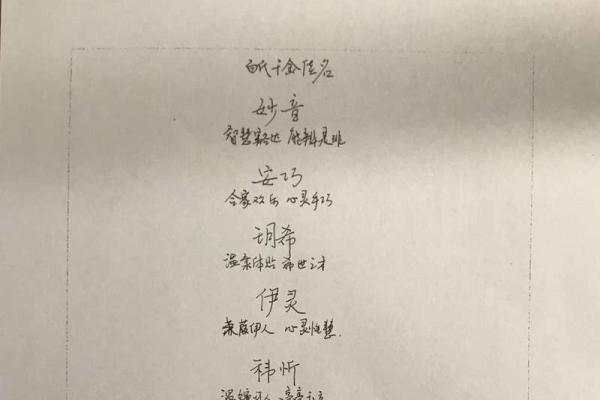 白氏千金佳名
妙音
智慧豁达 能辨是非
安巧
合家欢乐 心灵手巧
玥希
温柔体贴 希世之才
伊灵
蒹葭伊人 心灵性慧.
祎忻